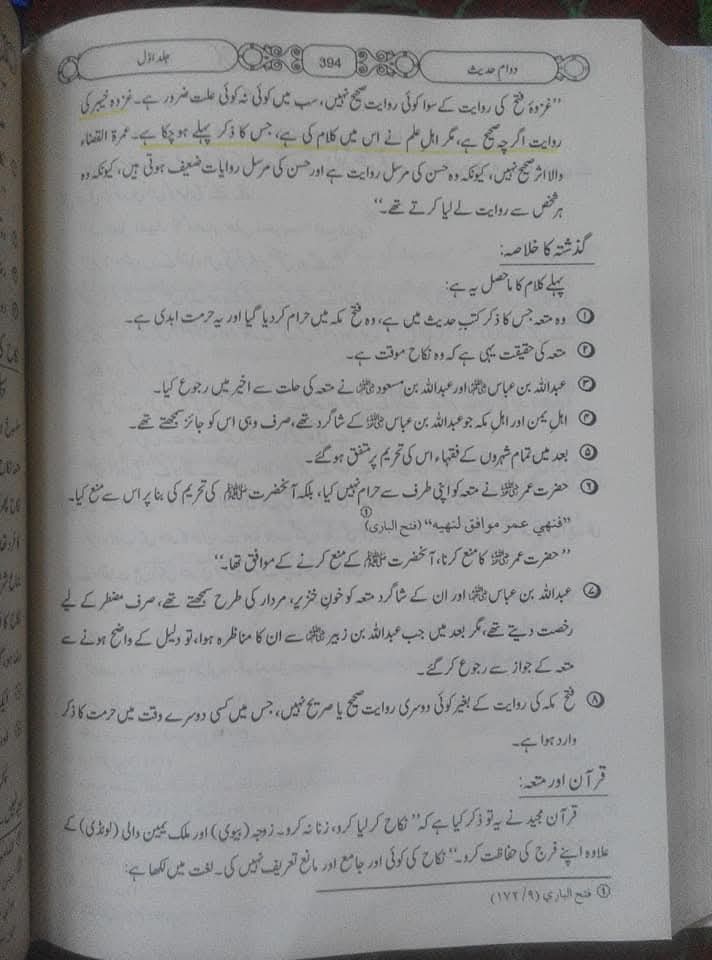 دوام حدیث
394
جلد اوّل
”غزوۂ فتح کی روایت کے سوا کوئی روایت صحیح نہیں، سب میں کوئی نہ کوئی علت ضرور ہے۔ غزوہ خیبر کی
روایت اگرچہ صحیح ہے، مگر اہلِ علم نے اس میں کلام کی ہے، جس کا ذکر پہلے ہو چکا ہے۔ عمرۃ القضاء
والا اثر صحیح نہیں، کیونکہ وہ حسن کی مرسل روایت ہے اور حسن کی مرسل روایات ضعیف ہوتی ہیں، کیونکہ وہ
ہر شخص سے روایت لے لیا کرتے تھے۔“
گذشتہ کا خلاصہ:
پہلے کلام کا ماحصل یہ ہے:
① وہ متعہ جس کا ذکر کتبِ حدیث میں ہے، وہ فتح مکہ میں حرام کر دیا گیا اور یہ حرمت ابدی ہے۔
② متعہ کی حقیقت یہی ہے کہ وہ نکاح موقت ہے۔
③ عبداللہ بن عباس رضی اللہ عنہ اور عبداللہ بن مسعود رضی اللہ عنہ نے متعہ کی حلت سے اخیر میں رجوع کیا۔
④ اہلِ یمن اور اہلِ مکہ جو عبداللہ بن عباس رضی اللہ عنہ کے شاگرد تھے، صرف وہی اس کو جائز سمجھتے تھے۔
⑤ بعد میں تمام شہروں کے فقہاء اس کی تحریم پر متفق ہو گئے۔
⑥ حضرت عمر رضی اللہ عنہ نے متعہ کو اپنی طرف سے حرام نہیں کیا، بلکہ آنحضرت ﷺ کی تحریم کی بنا پر اس سے منع کیا۔
”فنهي عمر موافق لنهيه“ (فتح الباری)①
”حضرت عمر رضی اللہ عنہ کا منع کرنا، آنحضرت ﷺ کے منع کرنے کے موافق تھا۔“
⑦ عبداللہ بن عباس رضی اللہ عنہ اور ان کے شاگرد متعہ کو خونِ خنزیر، مردار کی طرح سمجھتے تھے، صرف مضطر کے لیے
رخصت دیتے تھے، مگر بعد میں جب عبداللہ بن زبیر رضی اللہ عنہ سے ان کا مناظرہ ہوا، تو دلیل کے واضح ہونے سے
متعہ کے جواز سے رجوع کر گئے۔
⑧ فتح مکہ کی روایت کے بغیر کوئی دوسری روایت صحیح یا صریح نہیں، جس میں کسی دوسرے وقت میں حرمت کا ذکر
وارد ہوا ہے۔
قرآن اور متعہ:
قرآن مجید نے یہ تو ذکر کیا ہے کہ ”نکاح کر لیا کرو، زنا نہ کرو۔ زوجہ (بیوی) اور ملک یمین والی (لونڈی) کے
علاوہ اپنے فرج کی حفاظت کرو۔“ نکاح کی کوئی اور جامع اور مانع تعریف نہیں کی۔ لغت میں لکھا ہے:
① فتح الباري (۹/ ۱۷۲)